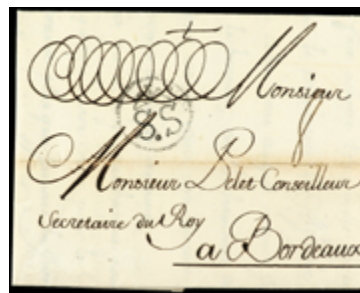 Monsieur
S.S
Monsieur Pelet Conseilleur
Secretaire du Roy
a Bordeaux